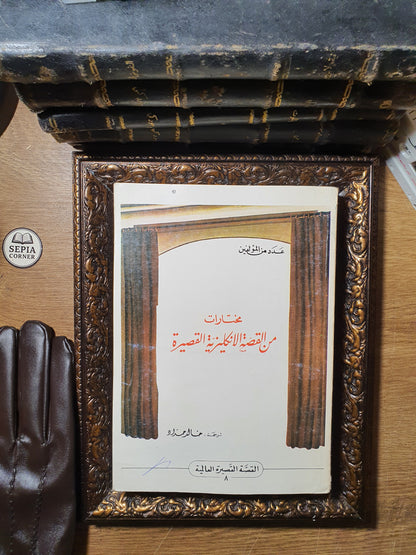 SEPIA
CORNER
عدد من المؤلفين
مختارات
من القصة الانكليزية القصيرة
ترجمة : خالد حداد
القصة القصيرة العالمية
٨